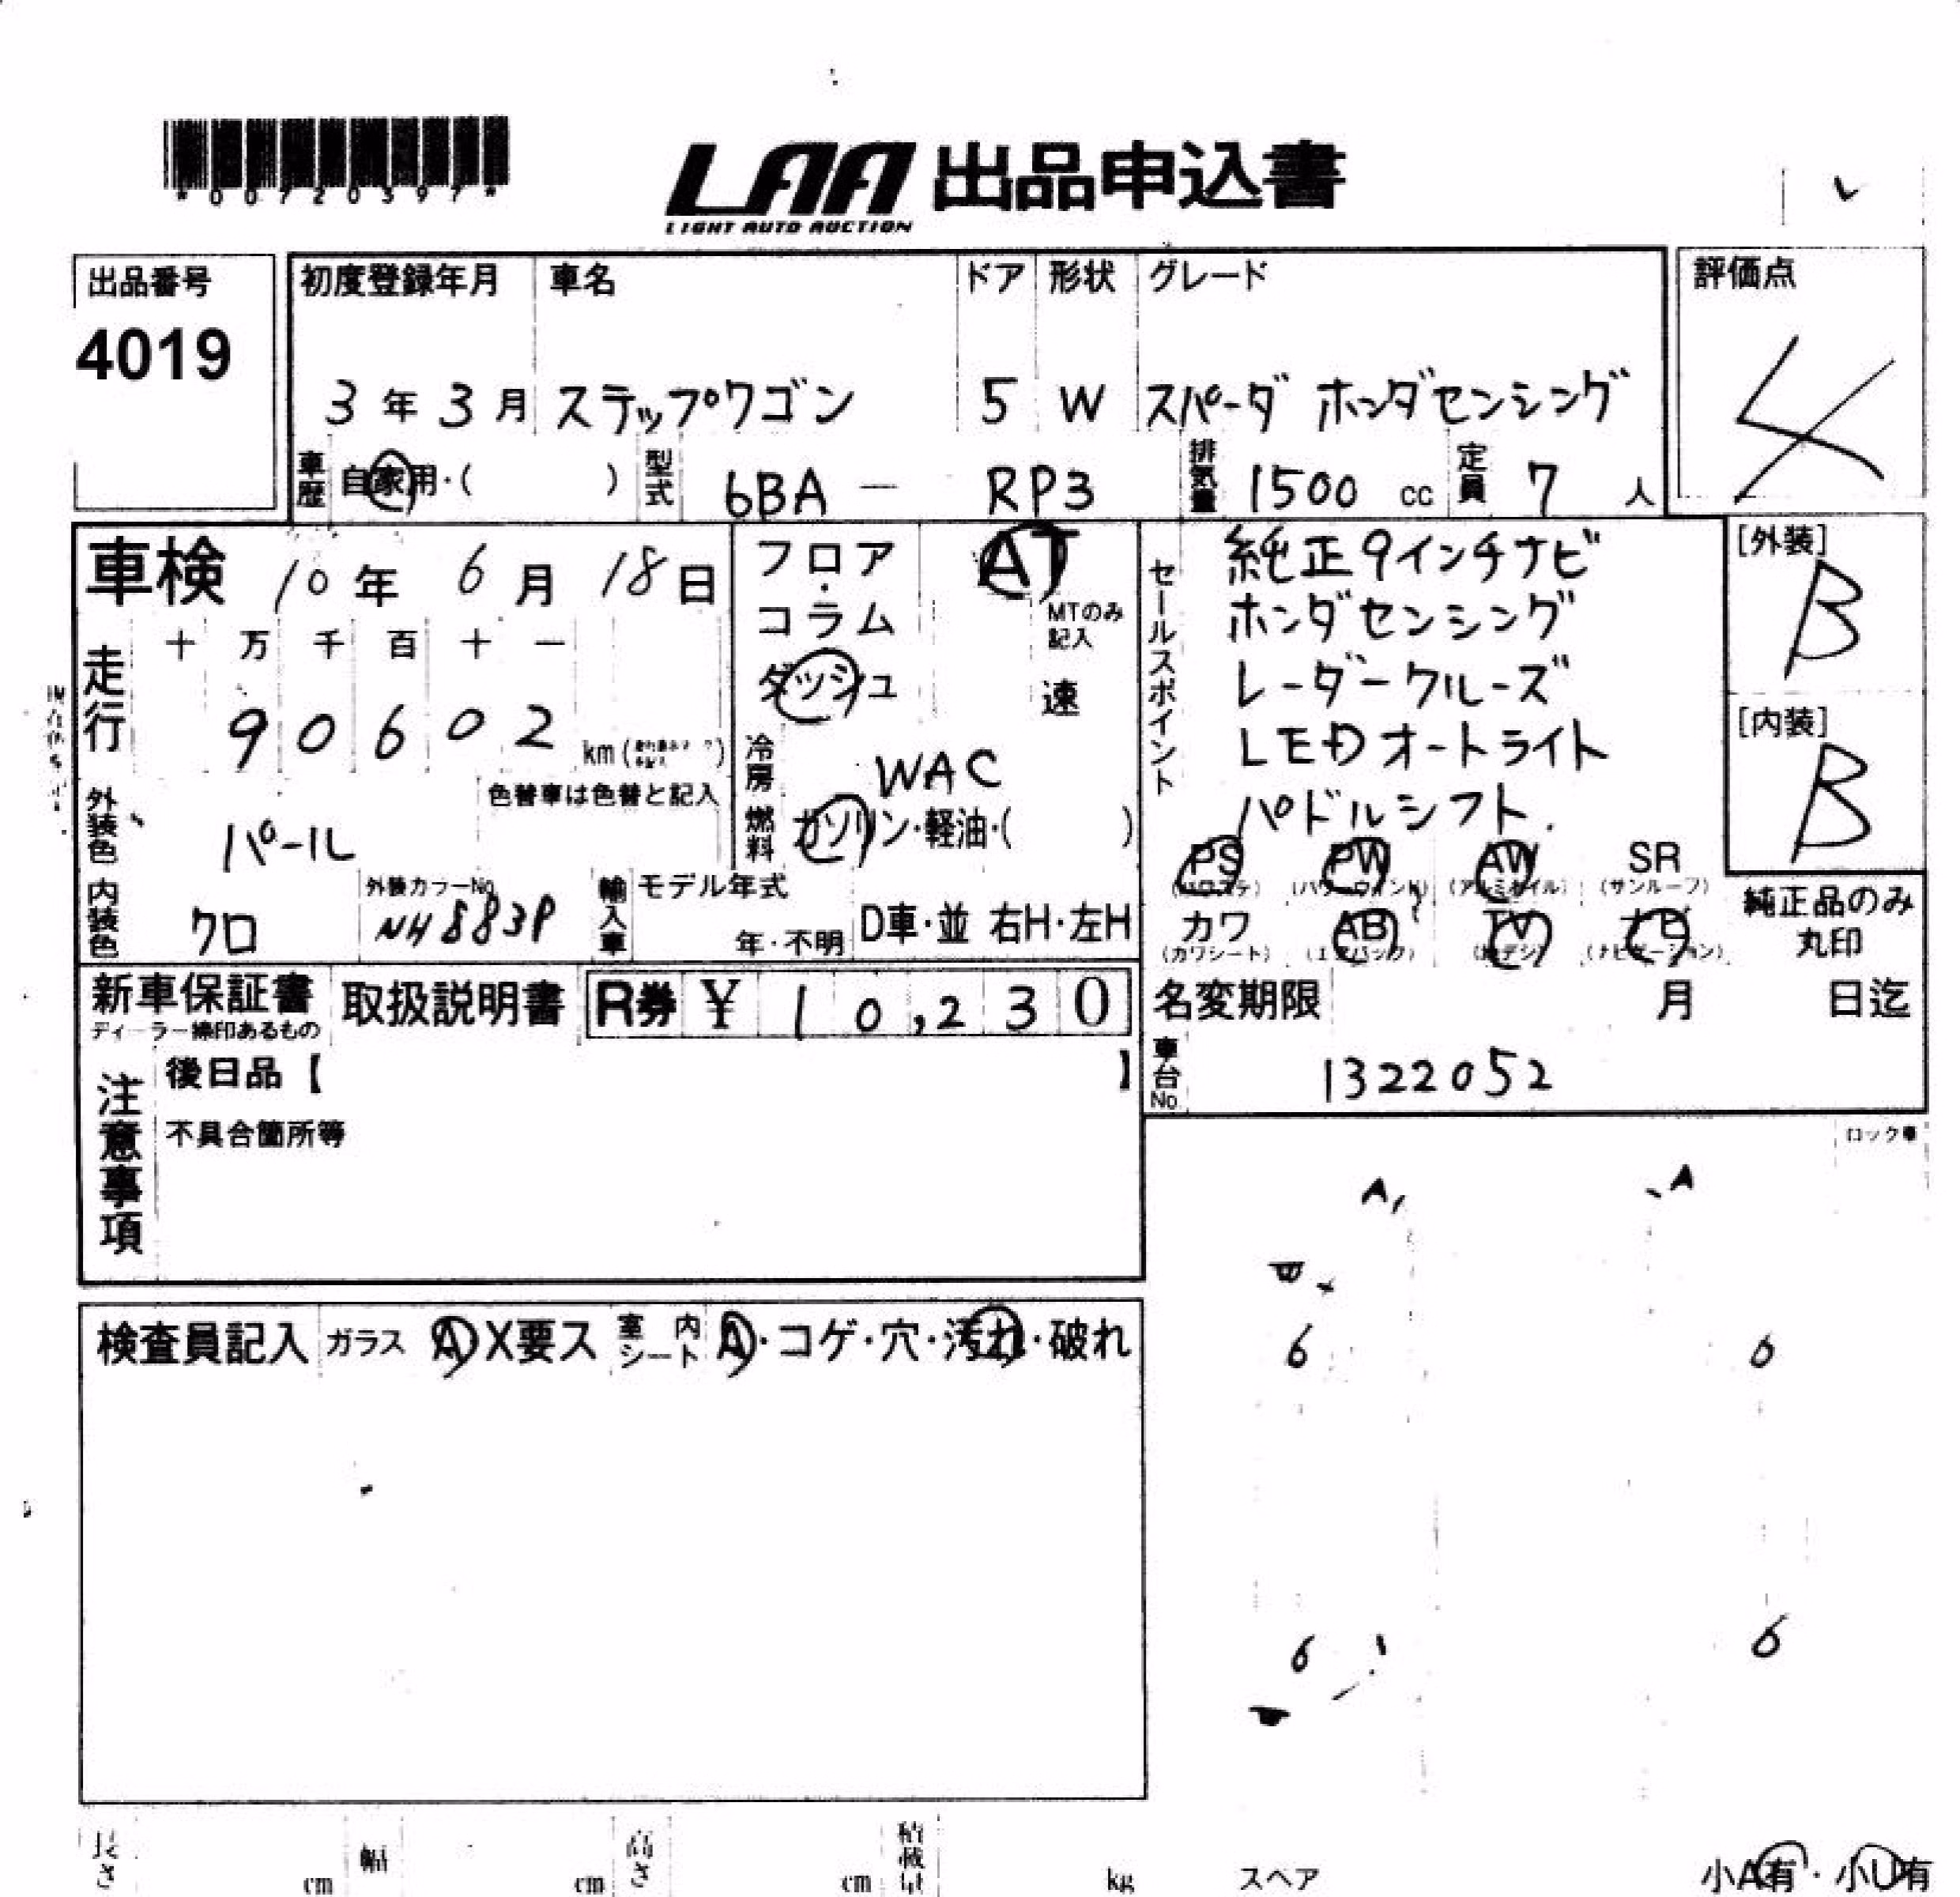 *00720397*
LAA 出品申込書
LIGHT AUTO AUCTION
出品番号
4019
初度登録年月 車名 ドア 形状 グレード
3年3月 ステップワゴン 5 W スパーダ ホンダセンシング
評価点
4
車歴 自家用・( ) 型式 6BA - RP3 排気量 1500 cc 定員 7 人
車検 10年 6月 18日
走行 十 万 千 百 十 一
90602 km
フロア・コラム
ダッシュ
AT
MTのみ記入
速
セールスポイント
純正9インチナビ
ホンダセンシング
レーダークルーズ
LEDオートライト
パドルシフト.
[外装]
B
[内装]
B
冷房 WAC
燃料 ガソリン・軽油・( )
外装色 パール
色替車は色替と記入
内装色 クロ
外装カラーNo.
NH883P
輸入車 モデル年式
年・不明 D車・並 右H・左H
PS PW AW SR
(パワステ) (パワーウィンド) (アルミホイル) (サンルーフ)
カワ AB TV ナビ
(カワシート) (エアバック) (地デジ) (ナビゲーション)
純正品のみ
丸印
新車保証書
ディーラー捺印あるもの
取扱説明書 R券 ¥ 10,230
名変期限 月 日迄
車台No. 1322052
注意事項
後日品【 】
不具合箇所等
ロック車
A A
検査員記入 ガラス A・X要ス 室内シート A・コゲ・穴・汚れ・破れ
6 6
6 6
長さ cm 幅 cm 高さ cm 積載量 kg スペア
小A有・小U有